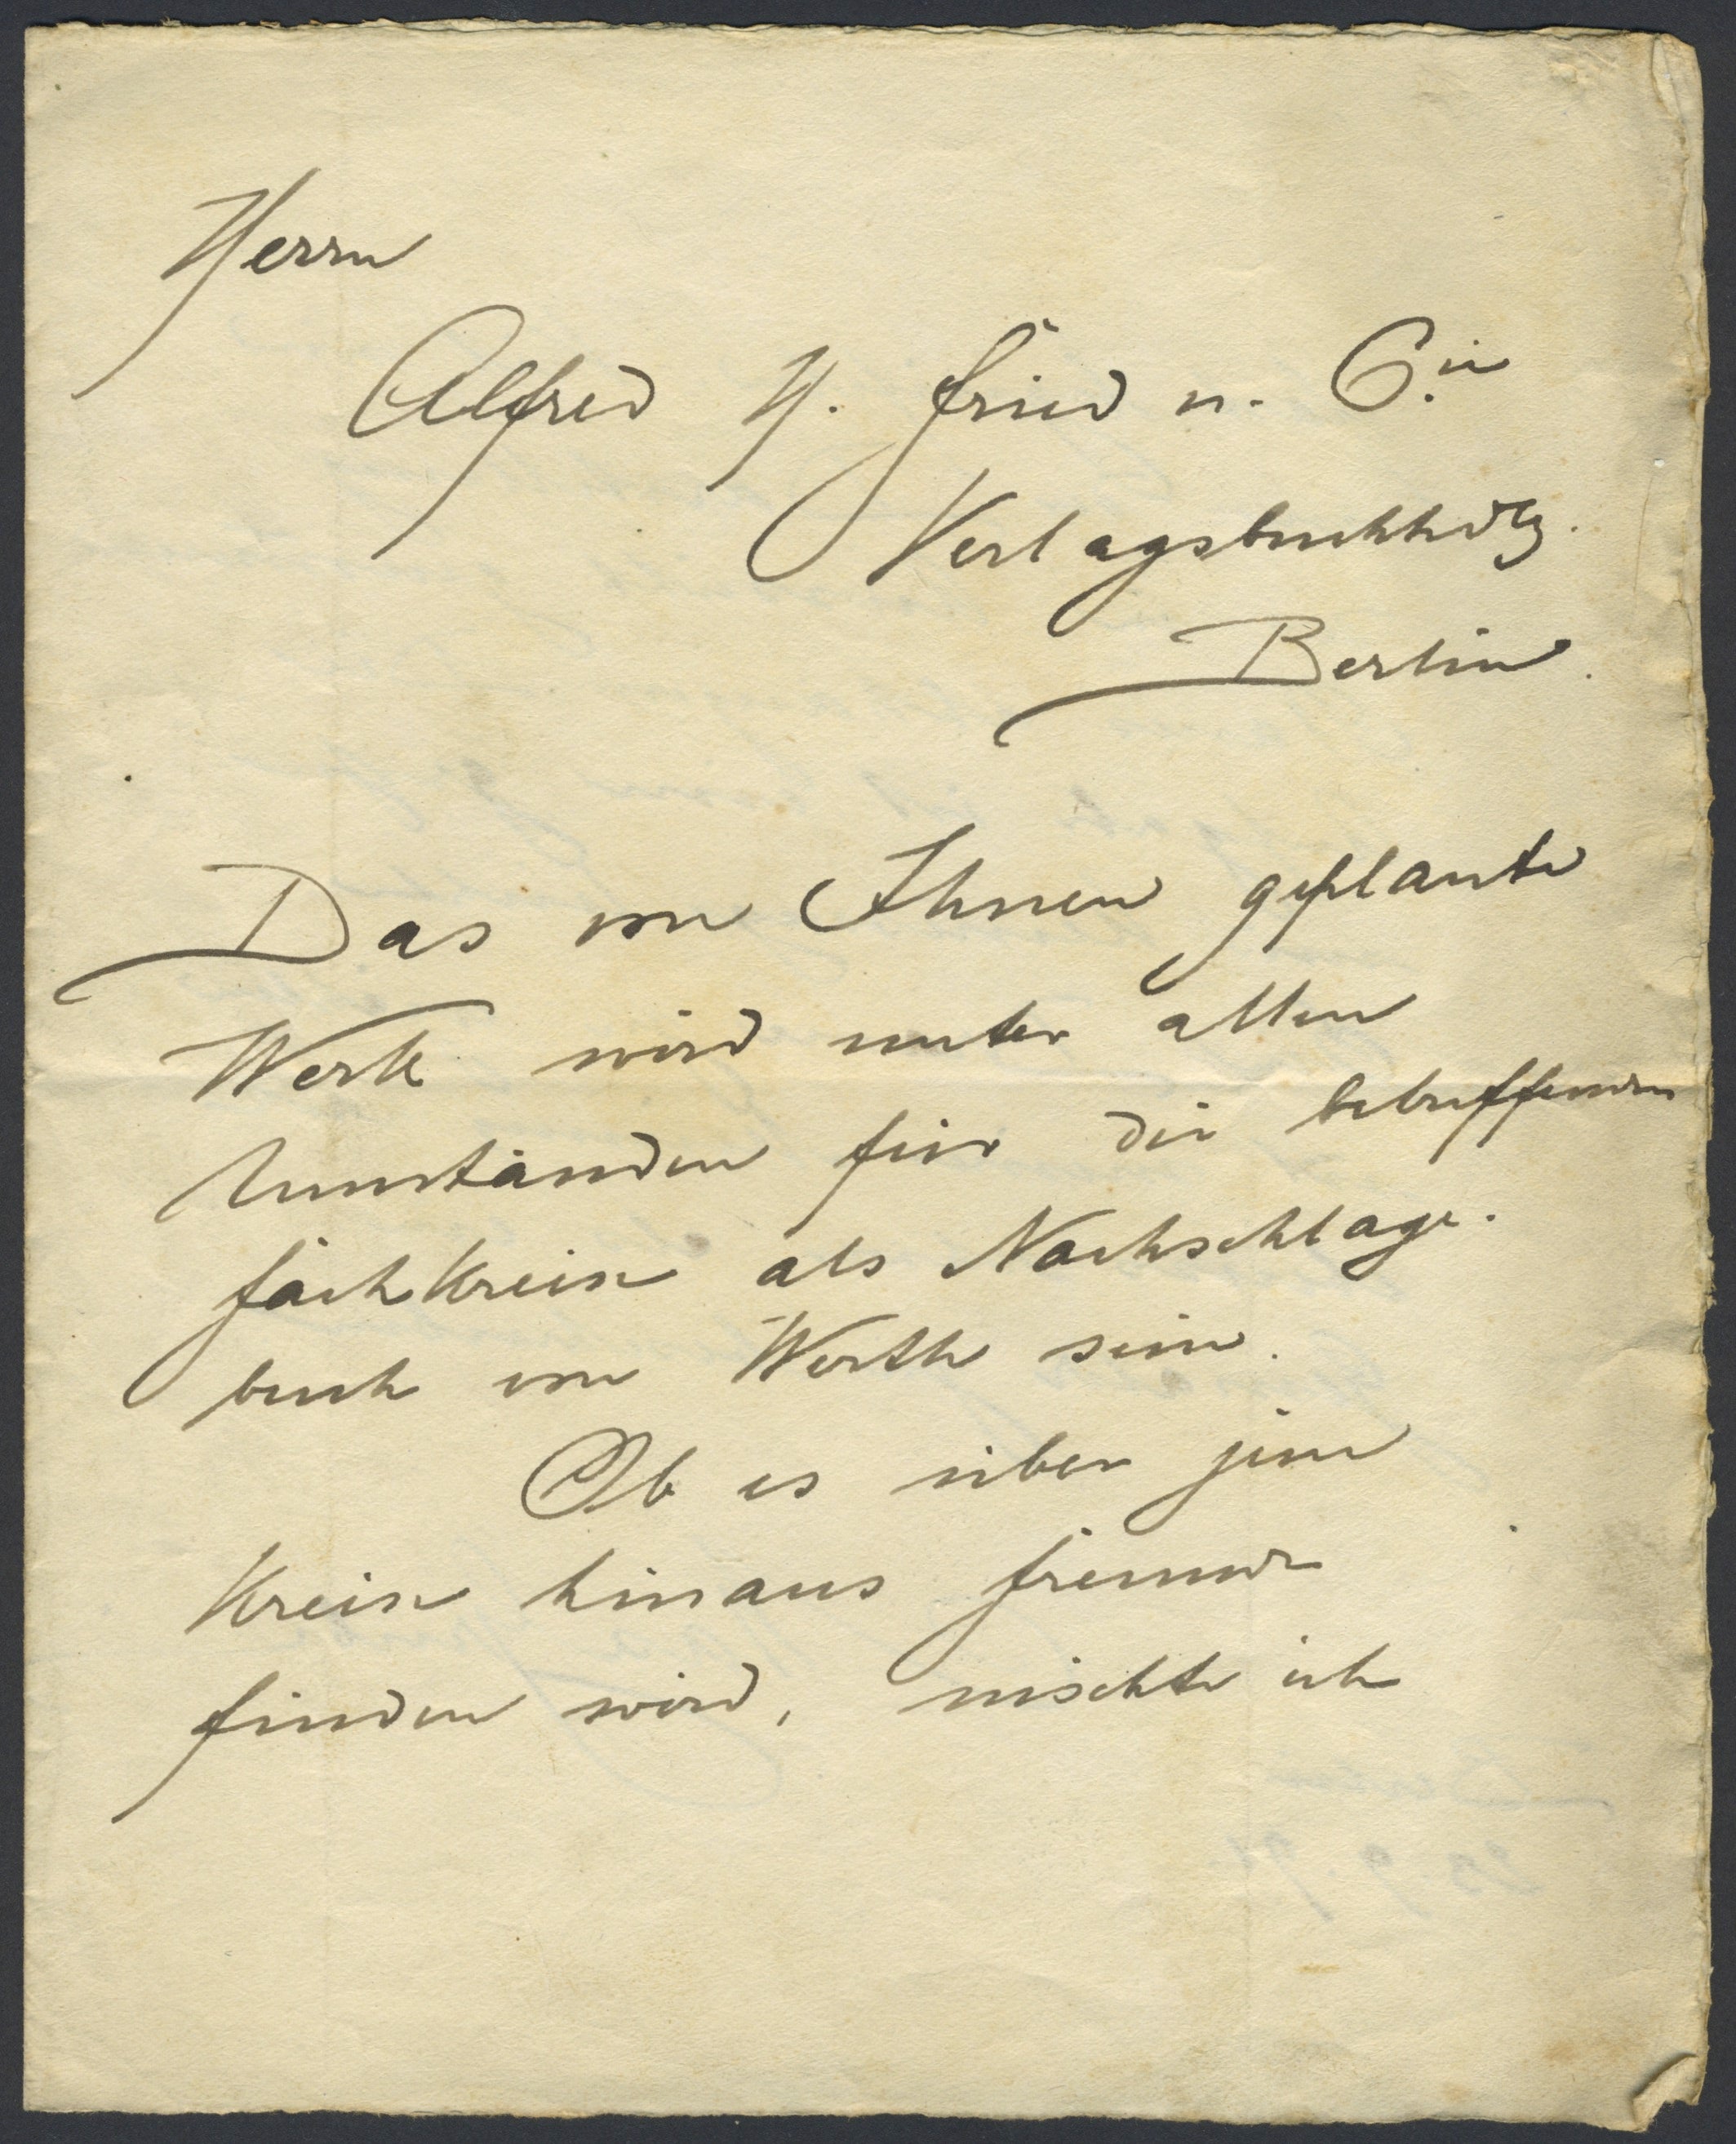 Herrn
Alfred H. Fried u. Cie
Verlagsbuchhdlg.
Berlin.
Das von Ihnen geplante
Werk wird unter allen
Umständen für die betreffenden
Fachkreise als Nachschlage-
buch von Werth sein.
Ob es über jene
Kreise hinaus Freunde
finden wird, möchte ich